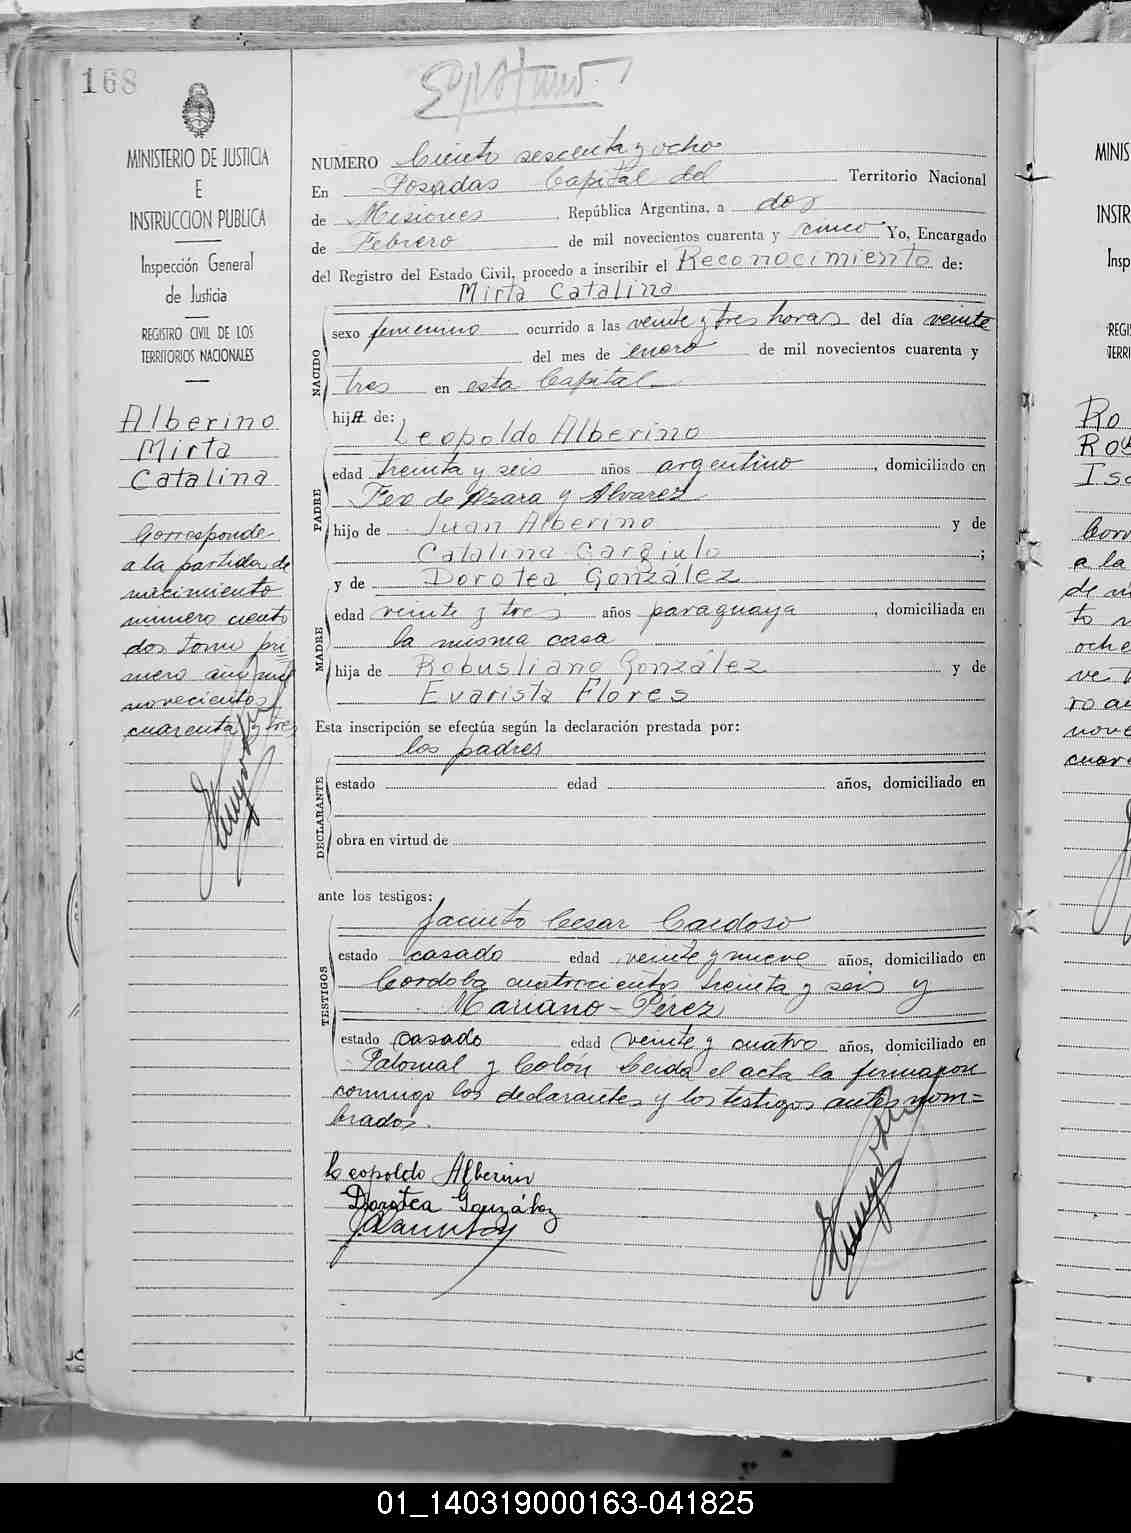 168
MINISTERIO DE JUSTICIA
E
INSTRUCCION PUBLICA
Inspección General
de Justicia
REGISTRO CIVIL DE LOS
TERRITORIOS NACIONALES
Alberino
Mirta
Catalina
Corresponde
a la partida de
nacimiento
número ciento
dos tomo pri-
mero año mil
novecientos
cuarenta y tres
NUMERO Ciento sesenta y ocho
En Posadas Capital del Territorio Nacional
de Misiones, República Argentina, a dos
de Febrero de mil novecientos cuarenta y cinco Yo, Encargado
del Registro del Estado Civil, procedo a inscribir el Reconocimiento de:
Mirta Catalina
NACIDO
sexo femenino ocurrido a las veinte y tres horas del día veinte
del mes de enero de mil novecientos cuarenta y
tres en esta Capital
hija de:
Leopoldo Alberino
PADRE
edad treinta y seis años argentino, domiciliado en
Fco de Azara y Alvarez
hijo de Juan Alberino y de
Catalina Cargiulo;
y de Dorotea González
MADRE
edad veinte y tres años paraguaya, domiciliada en
la misma casa
hija de Robustiano González y de
Evarista Flores
Esta inscripción se efectúa según la declaración prestada por:
los padres
DECLARANTE
estado edad años, domiciliado en
obra en virtud de
ante los testigos:
Jacinto Cesar Cardoso
TESTIGOS
estado casado edad veinte y nueve años, domiciliado en
Cordoba cuatrocientos treinta y seis y
Mariano Pérez
estado casado edad veinte y cuatro años, domiciliado en
Palomal y Colón Leída el acta la firmaron
conmigo los declarantes y los testigos antes nom=
brados.
Leopoldo Alberino
Dorotea González
MINIS
INSTR
Insp
REGIS
TERRI
Ro
Isa
Corr
a la
de na
to n
oche
ve t
ro añ
nove
cuar
01_140319000163-041825